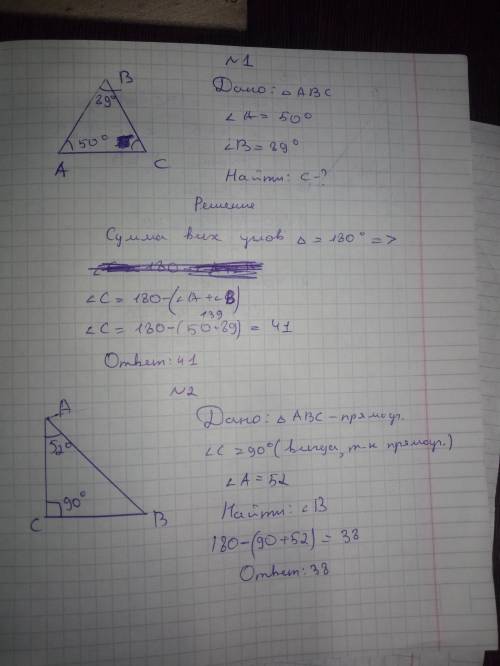 №1
B
89°
50°
A
C
Дано: △ABC
∠A = 50°
∠B = 89°
Найти: C - ?
Решение
Сумма всих углов △ = 180° =>
∠C = 180-(∠A+∠B)
139
∠C = 180-(50+89) = 41
Ответ: 41
№2
A
52°
90°
C
B
Дано: △ABC - прямоуг.
∠C = 90° (всегда, т-к прямоуг.)
∠A = 52
Найти: ∠B
180-(90+52) = 38
Ответ: 38